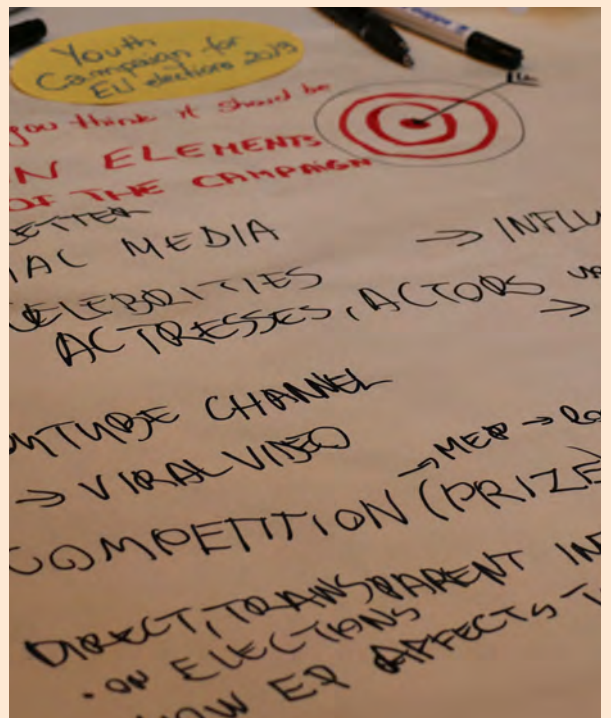 Youth
Campaign for
EU elections 2019
you think it should be
ELEMENTS
OF THE CAMPAIGN
MEDIA
→ INFLU
CELEBRITIES
ACTRESSES, ACTORS
→
CHANNEL
→ VIRAL VIDEO
→ MEP →
COMPETITION (PRIZE)
DIRECT, TRANSPARENT IN
• ON ELECTIONS
HOW EP AFFECTS